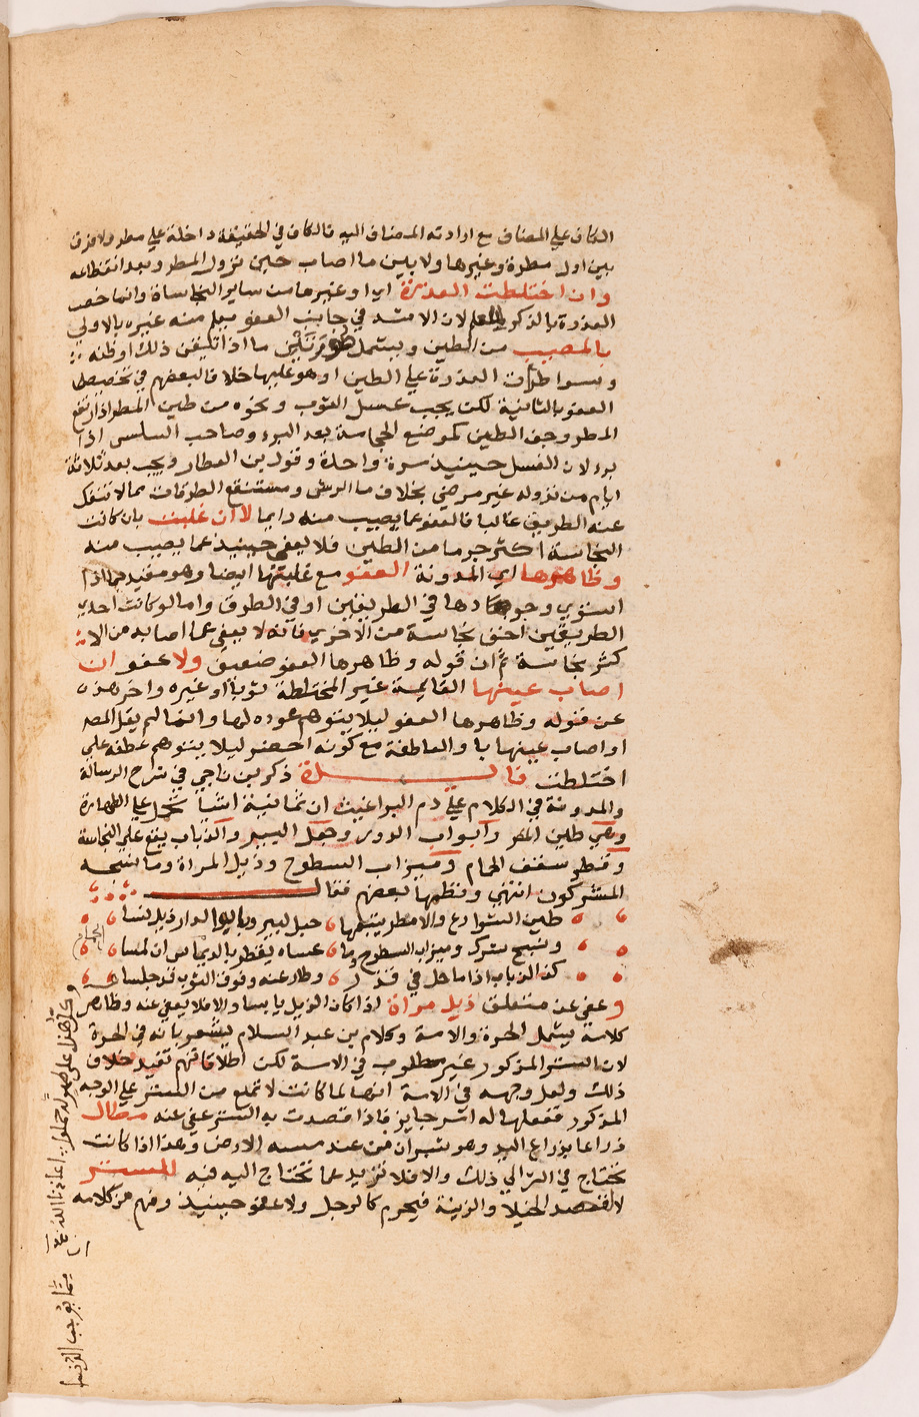 الكاف علي المضاف مع ارادته المضاف اليه فالكاف في الحقيقة داخلة علي مطر ولا فرق
بين اول مطرة وغيرها ولا بين ما اصاب حين نزول المطر وبعد انقطاعه
وان اختلطت العذرة اي او غيرها من ساير النجاساة وانما خص
العذرة بالذكر لان الاشد في جانب العفو يعلم منه غيره بالاولي
بالمصيب من الطين ويشمل ما اذا تيقن ذلك او ظنه
وسوا طرات العذرة علي الطين او هو عليها خلافا لبعضهم في تخصيصها
العفو بالثانية لكن يجب غسل الثوب ونحوه من طين المطر اذا ارتفع
المطر وجف الطين كموضع الحجامسة بعد البرء وصاحب السلس اذا
برء لان الغسل حينيذ مرة واحدة وقول بن العطار ويجب بعد ثلاثة
ايام من نزوله غير مرضي بخلاف ما الرش ومستنقع الطرقات مما لا تنفك
عنه الطريق غالبا فالعفو عما يصيب منه دايما لا ان غلبت بان كانت
النجاسة اكثر جرما من الطين فلا يعفي حينيذ عما يصيب منه
وظاهرها اي المدونة العفو مع غلبتها ايضا وهو مقيد بما اذا
استوي وجودها في الطريقين او في الطرق واما لو كانت احدي
الطريقين اخف نجاسة من الاخري فانه لا يعفي عما اصابه من الا
كثر نجاسة ثم ان قوله وظاهرها العفو ضعيف ولا عفو ان
اصاب عينها القايمة غير المختلطة ثوبا او غيره واخر هذه
عن قوله وظاهرها العفو ليلا يتوهم عوده لها وانما لم يقل المص
او اصاب عينها باو العاطفة مع كونه اخصر ليلا يتوهم عطفه علي
اختلطت فايـــدة ذكر بن ناجي في شرح الرسالة
والمدونة في الكلام علي دم البراغيث ان ثمانية اشيا تحمل علي الطهارة
وهي طين المطر وابواب الدور وحبل البير والذباب يقع علي النجاسة
وقطر سقف الحمام وميزاب السطوح وذيل المراة وما نسجه
المشركون انتهي ونظمها بعضهم فقال
طين الشوارع والامطر يتبعها حبل لبير وبابوا الدار ذيل نسا
ونسج مشرك وميزاب السطوح وما عساه يقطر بالديماس ان لمسا
كذا الذباب اذا ما حل في قذر وطار عنه وفوق الثوب قد جلسا
وعفي عن متعلق ذيل مراة اذا كان الزيل يابسا والا فلا يعفي عنه وظاهر
كلامه يشمل الحرة والامة وكلام بن عبد السلام يشعر بانه في الحرة
لان الستر المذكور غير مطلوب في الامة لكن اطلاقاتهم تفيد خلاف
ذلك ولعل وجهه في الامة انها لما كانت لا تمنع من الستر علي الوجه
المذكور ففعلها له اثر جايز فاذا قصدت به الستر عفي عنه مطال
ذراعا بزراع اليد وهو شبران من عند مسه الارض وهذا اذا كانت
تحتاج في التر الي ذلك والا فلا تزيد عما تحتاج اليه فيه للستر
لا لقصد الخيلا والزينة فيحرم كالرجل ولا عفو حينيذ وفهم من كلامه